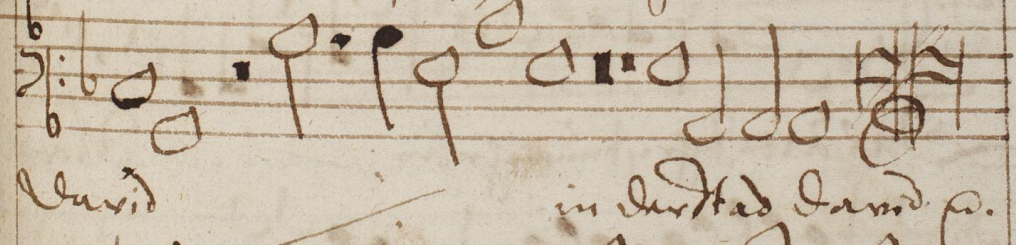 David
in der Stad David